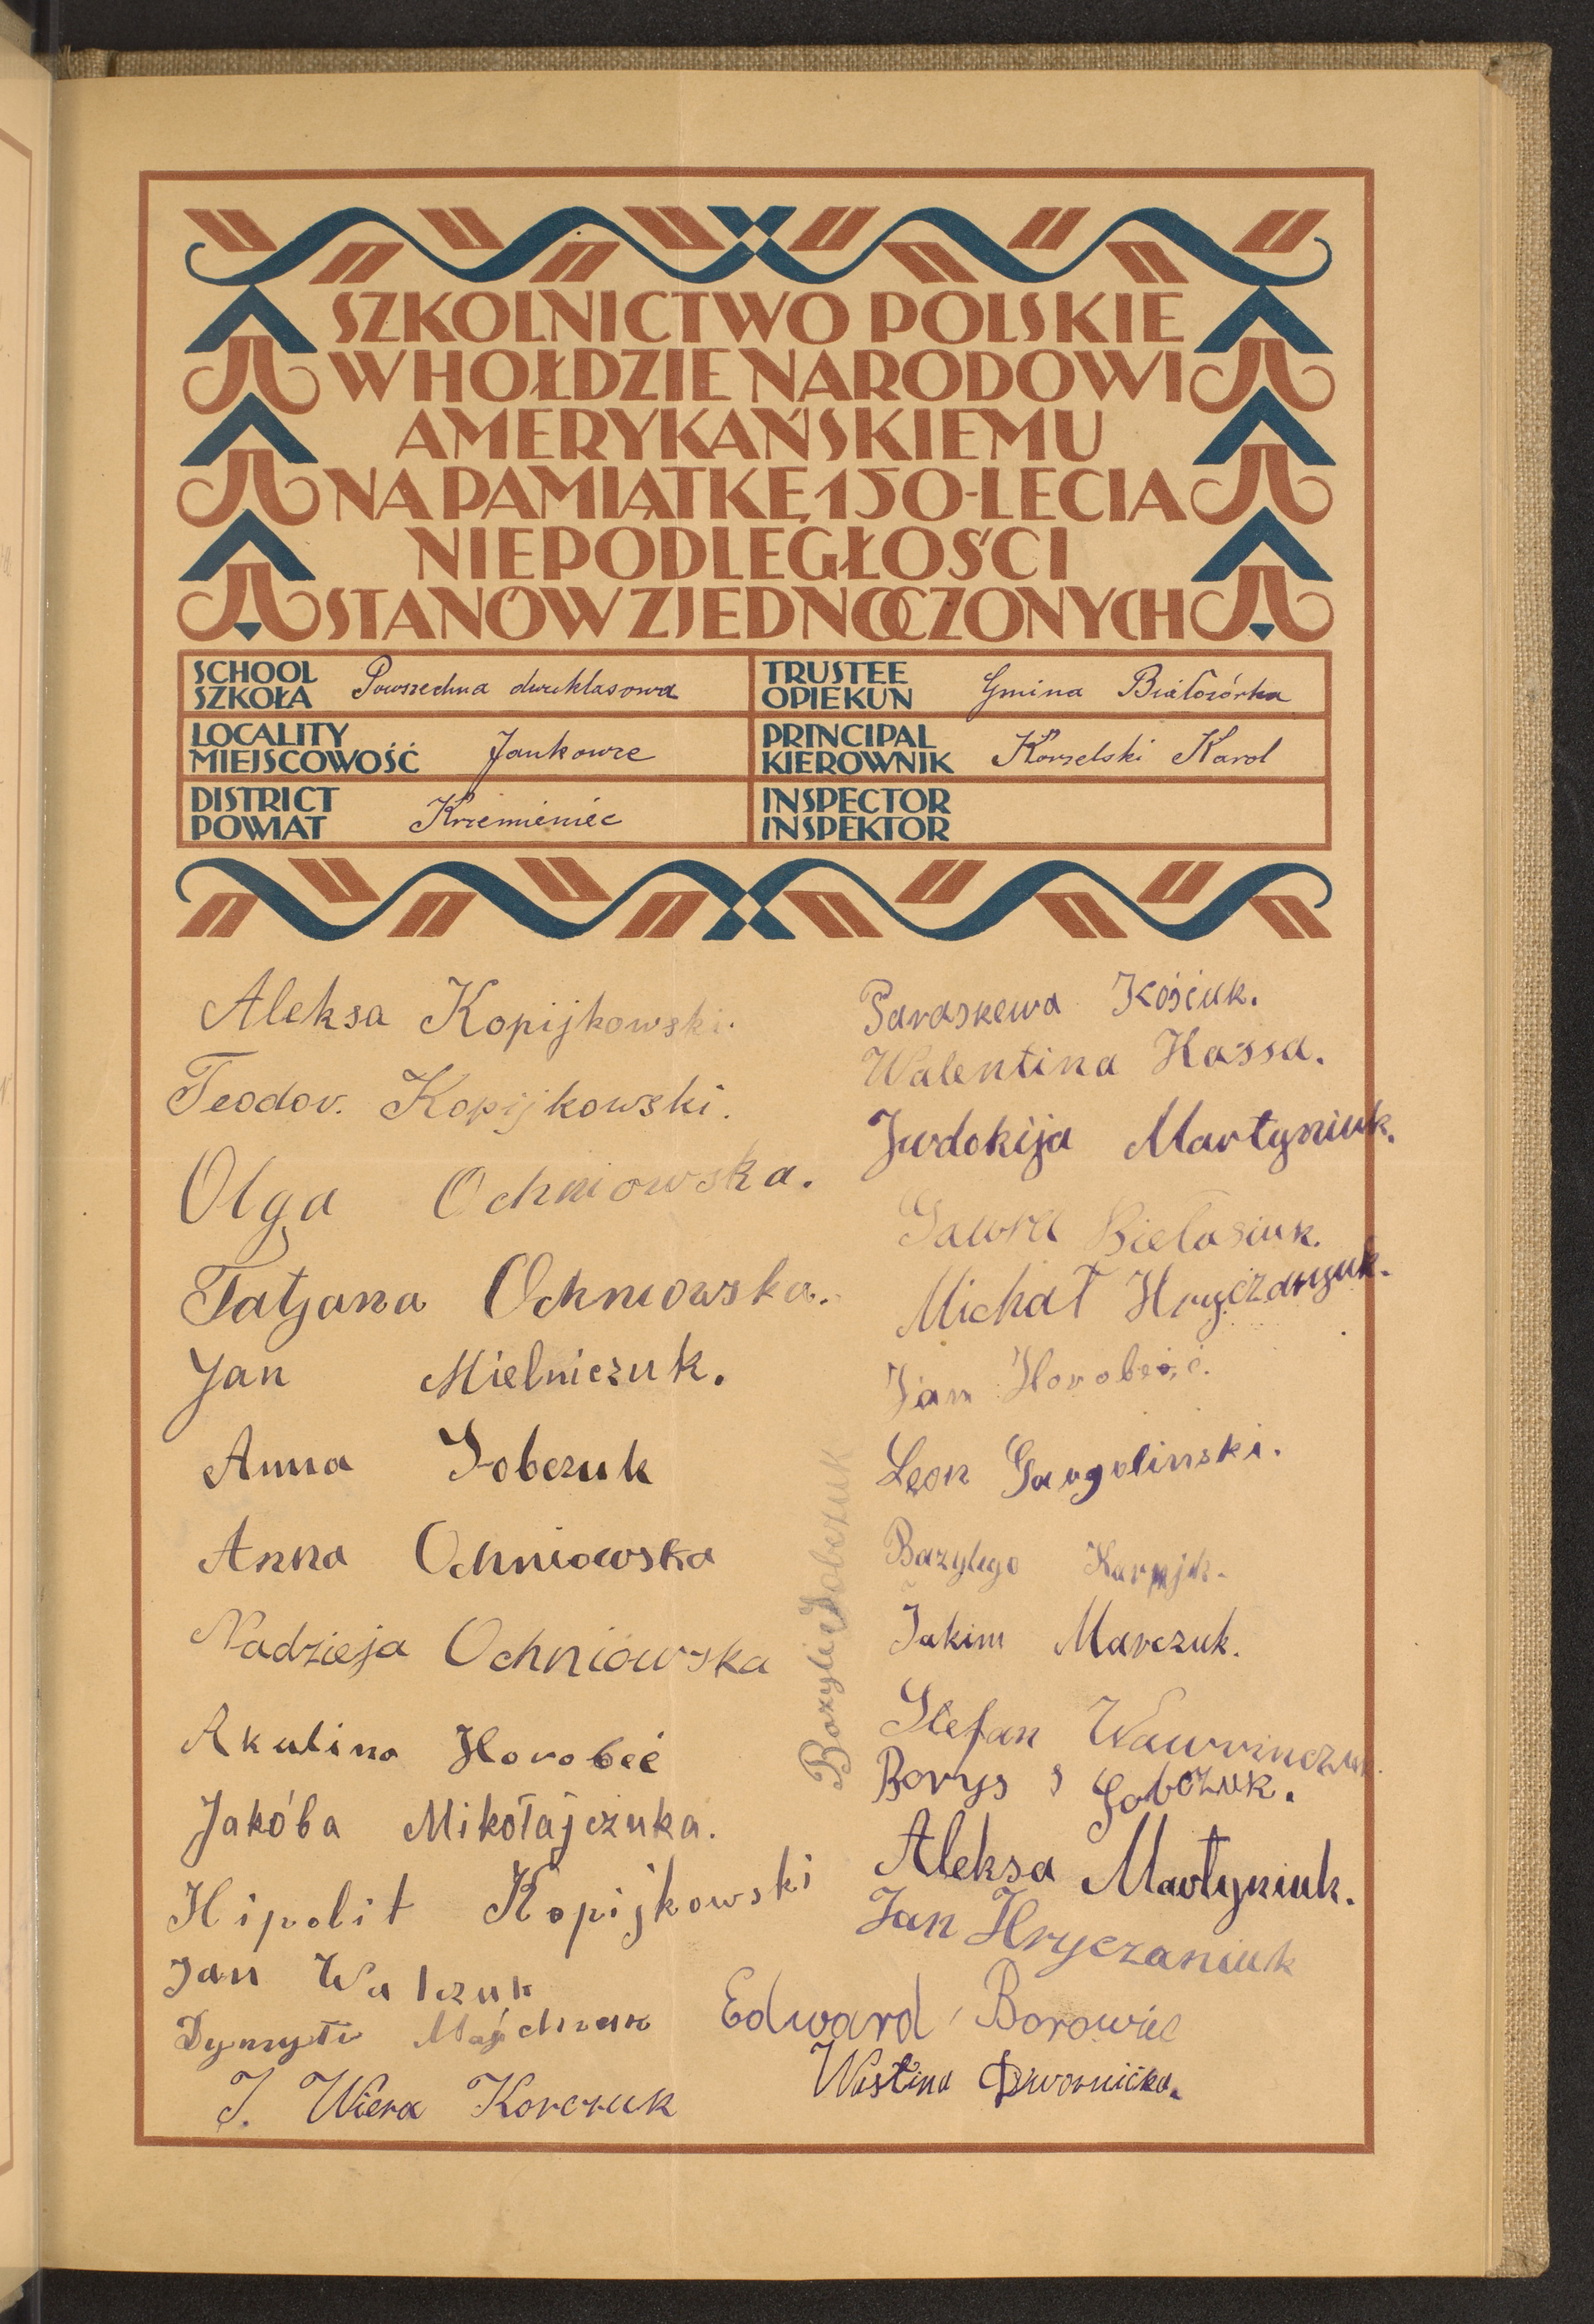 SZKOLNICTWO POLSKIE
W HOŁDZIE NARODOWI
AMERYKAŃSKIEMU
NA PAMIĄTKĘ 150-LECIA
NIEPODLEGŁOŚCI
STANÓW ZJEDNOCZONYCH
SCHOOL
SZKOŁA Powszechna dwuklasowa
TRUSTEE
OPIEKUN Gmina Białozórka
LOCALITY
MIEJSCOWOŚĆ Jankowce
PRINCIPAL
KIEROWNIK Korzelski Karol
DISTRICT
POWIAT Krzemieniec
INSPECTOR
INSPEKTOR
Aleksa Kopijkowski.
Teodor. Kopijkowski.
Olga Ochniowska.
Tatjana Ochniowska.
Jan Mielniczuk.
Anna Sobczuk
Anna Ochniowska
Nadzieja Ochniowska
Akulina Horobeć
Jakóba Mikołajczuka.
Hipolit Kopijkowski
Jan Walczuk
J. Wiera Korczuk
Bazyli Sobczuk
Paraskewa Kościuk.
Walentina Hassa.
Jwdokija Martyniuk.
Bielasiuk.
Michał Hryczanyuk.
Jan
Leon Gargolinski.
Bazylego
Jakim Marczuk.
Stefan Wawrinczuk
Borys Sobczuk.
Aleksa Martyniuk.
Jan Hryczaniuk
Edward Borowic
Wustina Dwornicka.